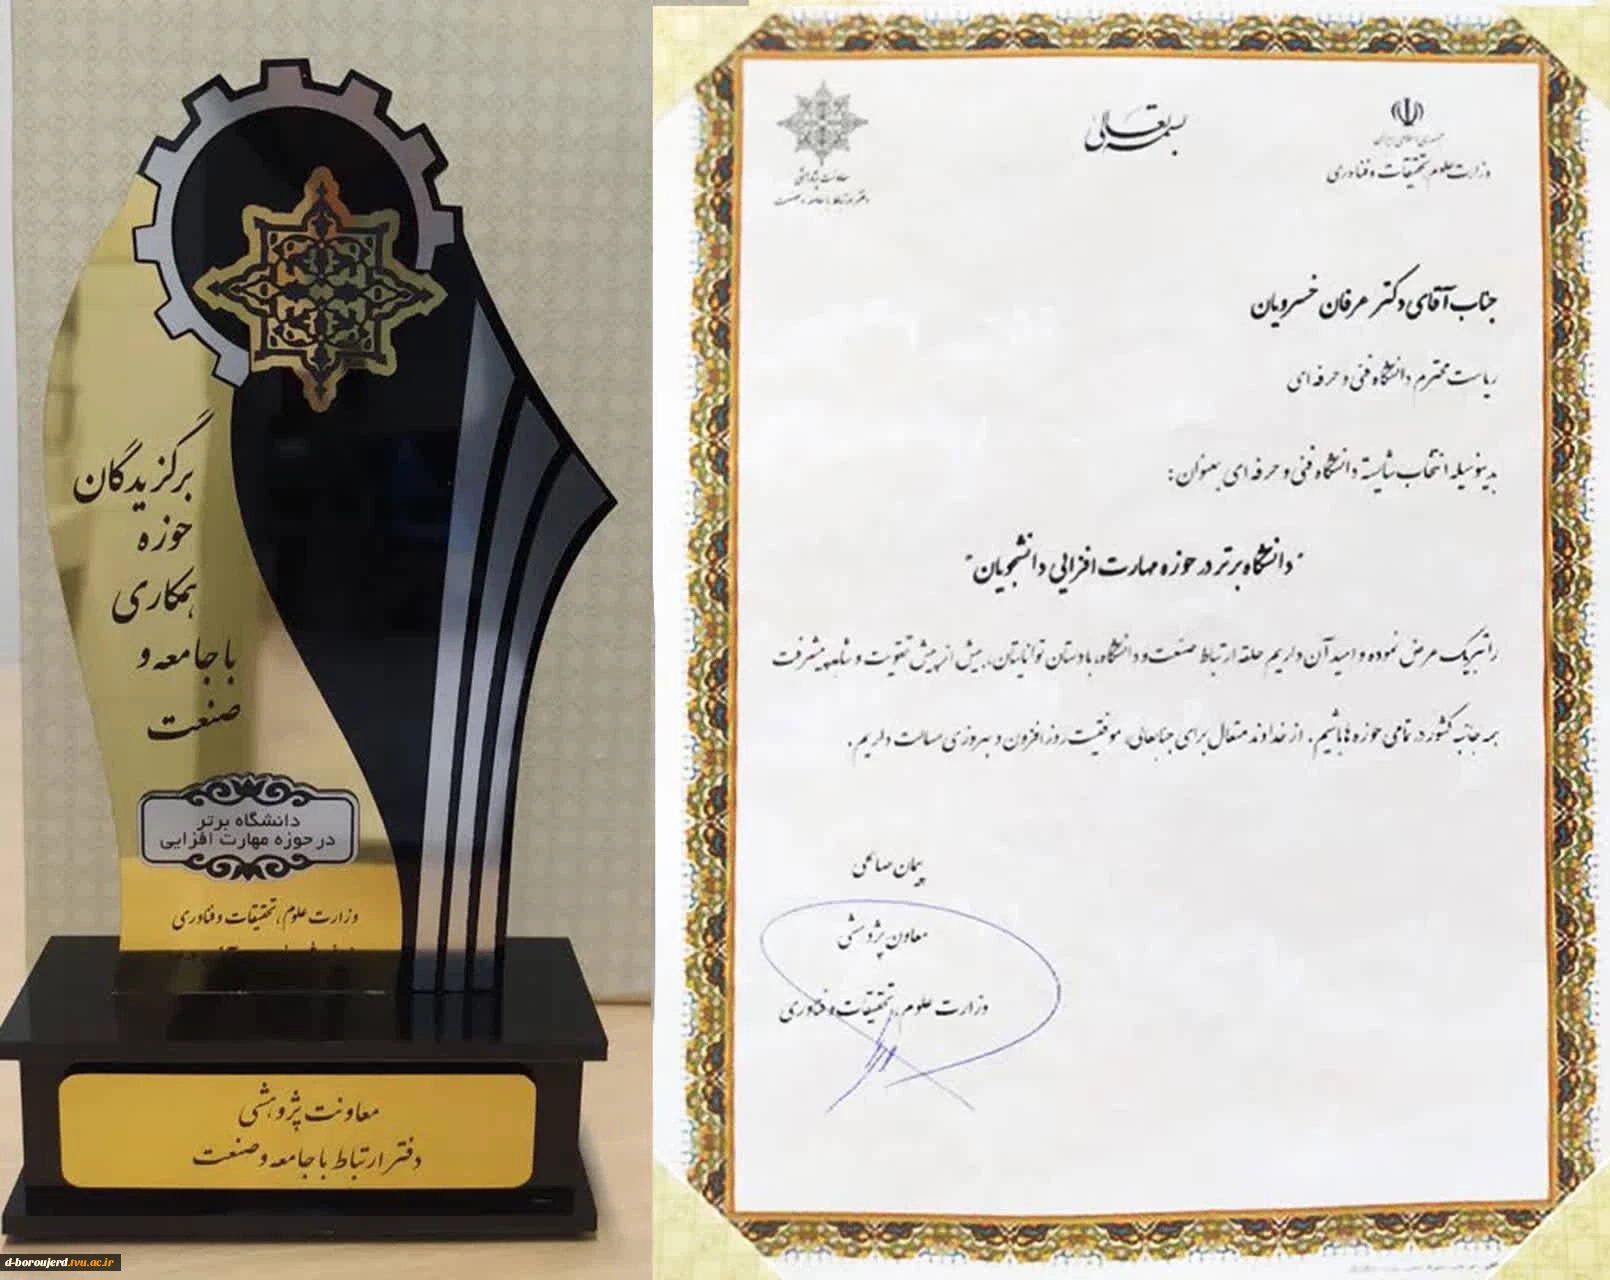 برگزیدگان
حوزه
همکاری
با جامعه و
صنعت
دانشگاه برتر
در حوزه مهارت افزایی
وزارت علوم، تحقیقات و فناوری
معاونت پژوهشی
دفتر ارتباط با جامعه و صنعت
d-boroujerd.tvu.ac.ir
بسمه تعالی
جمهوری اسلامی ایران
وزارت علوم، تحقیقات و فناوری
معاونت پژوهشی
دفتر ارتباط با جامعه و صنعت
جناب آقای دکتر عرفان خسرویان
ریاست محترم دانشگاه فنی و حرفه ای
بدینوسیله انتخاب شایسته دانشگاه فنی و حرفه ای بعنوان:
"دانشگاه برتر در حوزه مهارت افزایی دانشجویان"
را تبریک عرض نموده و امید آن داریم حلقه ارتباط صنعت و دانشگاه، با دستان توانایتان، بیش از پیش تقویت و شاهد پیشرفت
همه جانبه کشور در تمامی حوزه ها باشیم. از خداوند متعال برای جنابعالی، موفقیت روز افزون و بهروزی مسالت داریم.
پیمان صالحی
معاون پژوهشی
وزارت علوم، تحقیقات و فناوری